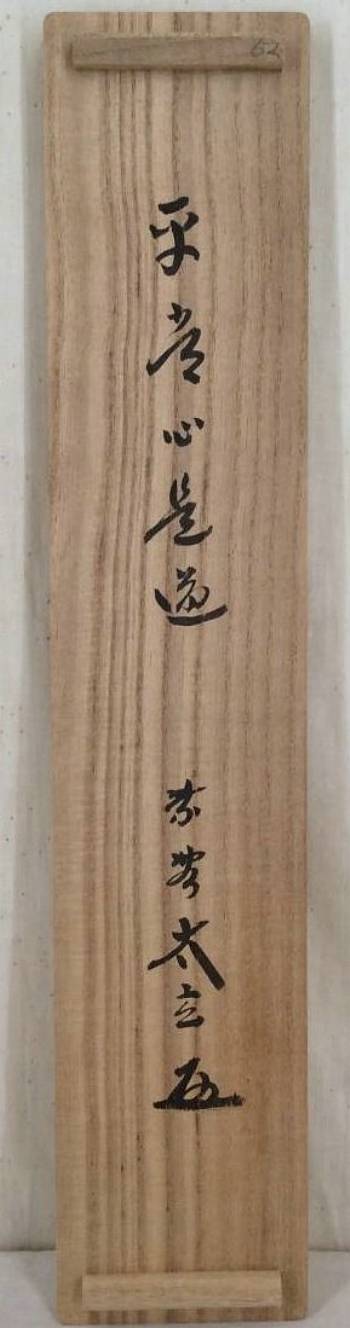 62
平常心是道
紫野太玄